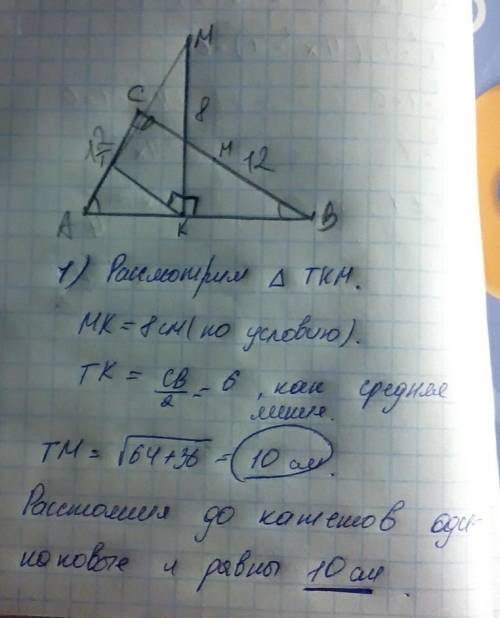 М
C
8
12
Н
12
Т
A
К
B
1) Рассмотрим △ ТКМ.
МК = 8 см (по условию).
ТК = CB/2 = 6 , как средняя
линия.
ТМ = √64+36 = 10 см.
Расстояния до катетов оди-
наковые и равны 10 см.